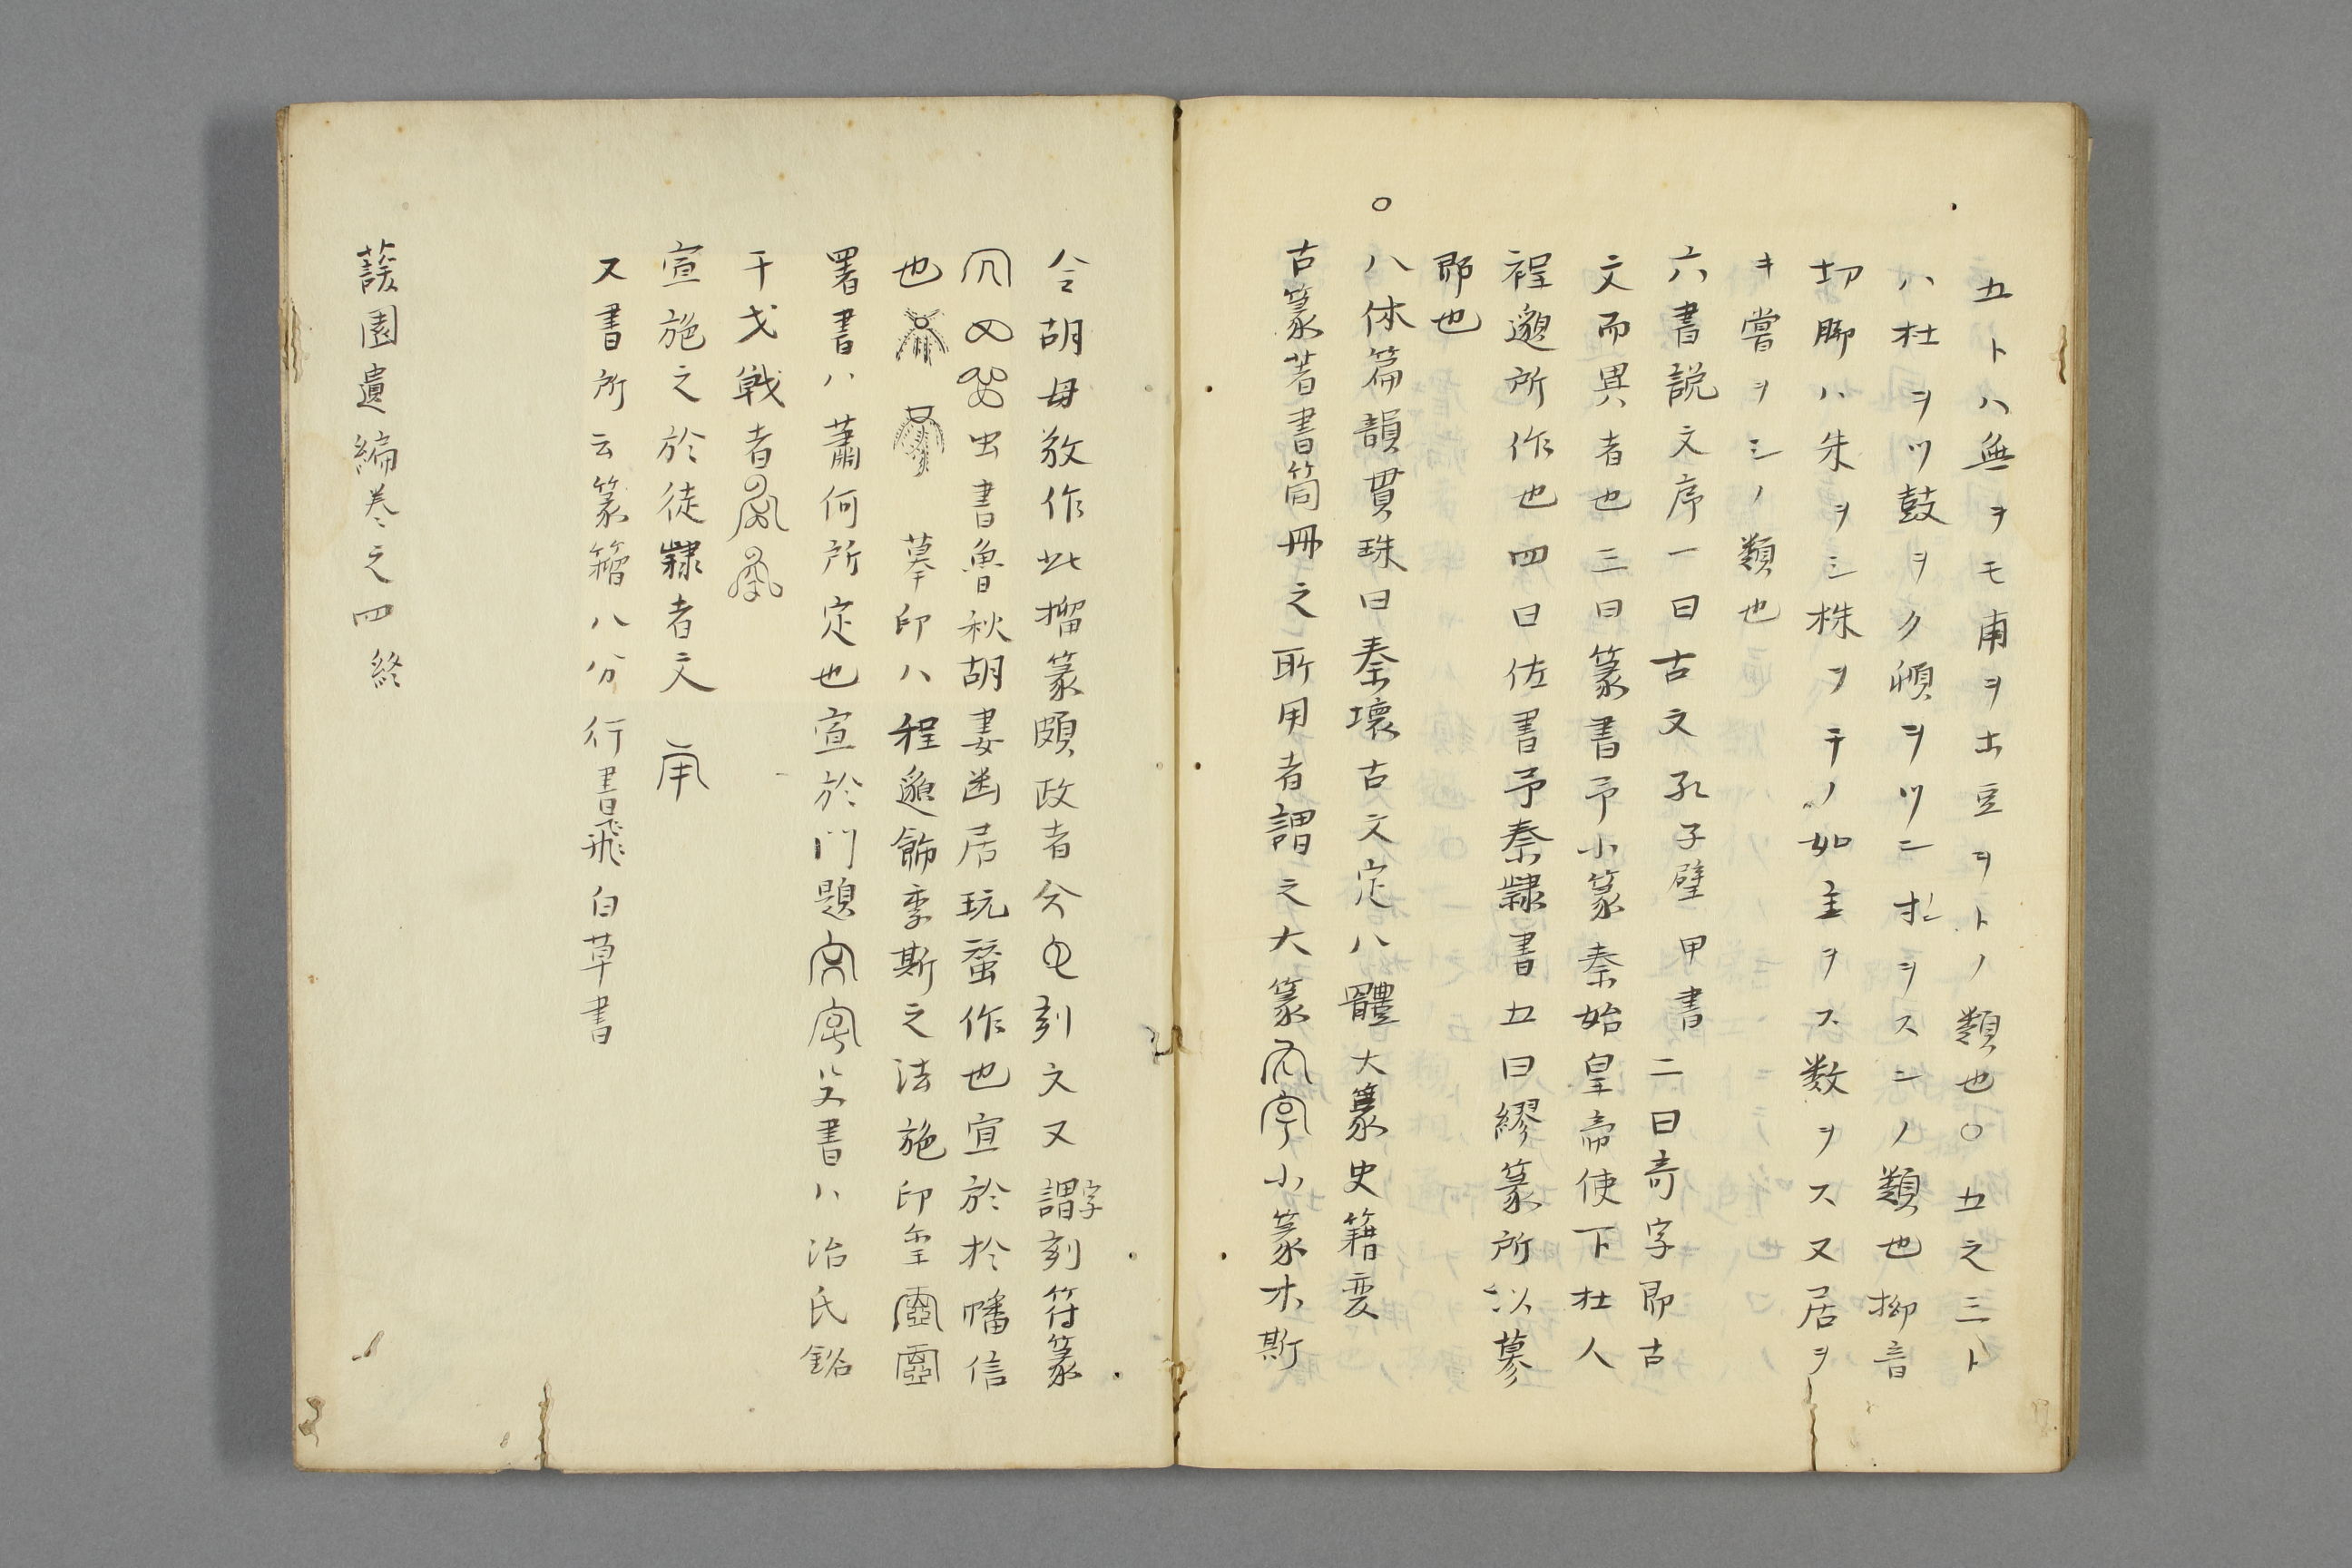 五トハ無ヲモ甫ヲホ豆ヲトノ類也〇五之三ト
ハ杜ヲツ鼓ヲク順ヲツニオンヲスニノ類也拗音
切脚ハ朱ヲシ株ヲチノ如主ヲス数ヲス又居ヲ
キ嘗ヲシノ類也
六書説文序一曰古文孔子壁甲書二曰奇字即古
文而異者也三曰篆書予小篆秦始皇帝使下杜人
程邈所作也四曰佐書予秦隷書五曰繆篆所以摹
即也
〇八体篇韻貫珠曰秦壊古文定八體大篆史籍変
古篆著書筒冊之所用者謂之大篆小篆木斯
令胡毋敬作此摺篆頗政者兮刻文又謂字刻符篆
虫書魯秋胡妻凾居玩蚕作也宜於於幡信
也摹印ハ程邈飾李斯之法施印璽
署書ハ蕭何所定也宣於門題殳書ハ治氏銘
干戈戦者
宣施之於徒隷者文
又書所云篆籀八分行書飛白草書
蘐園遺編巻之四終